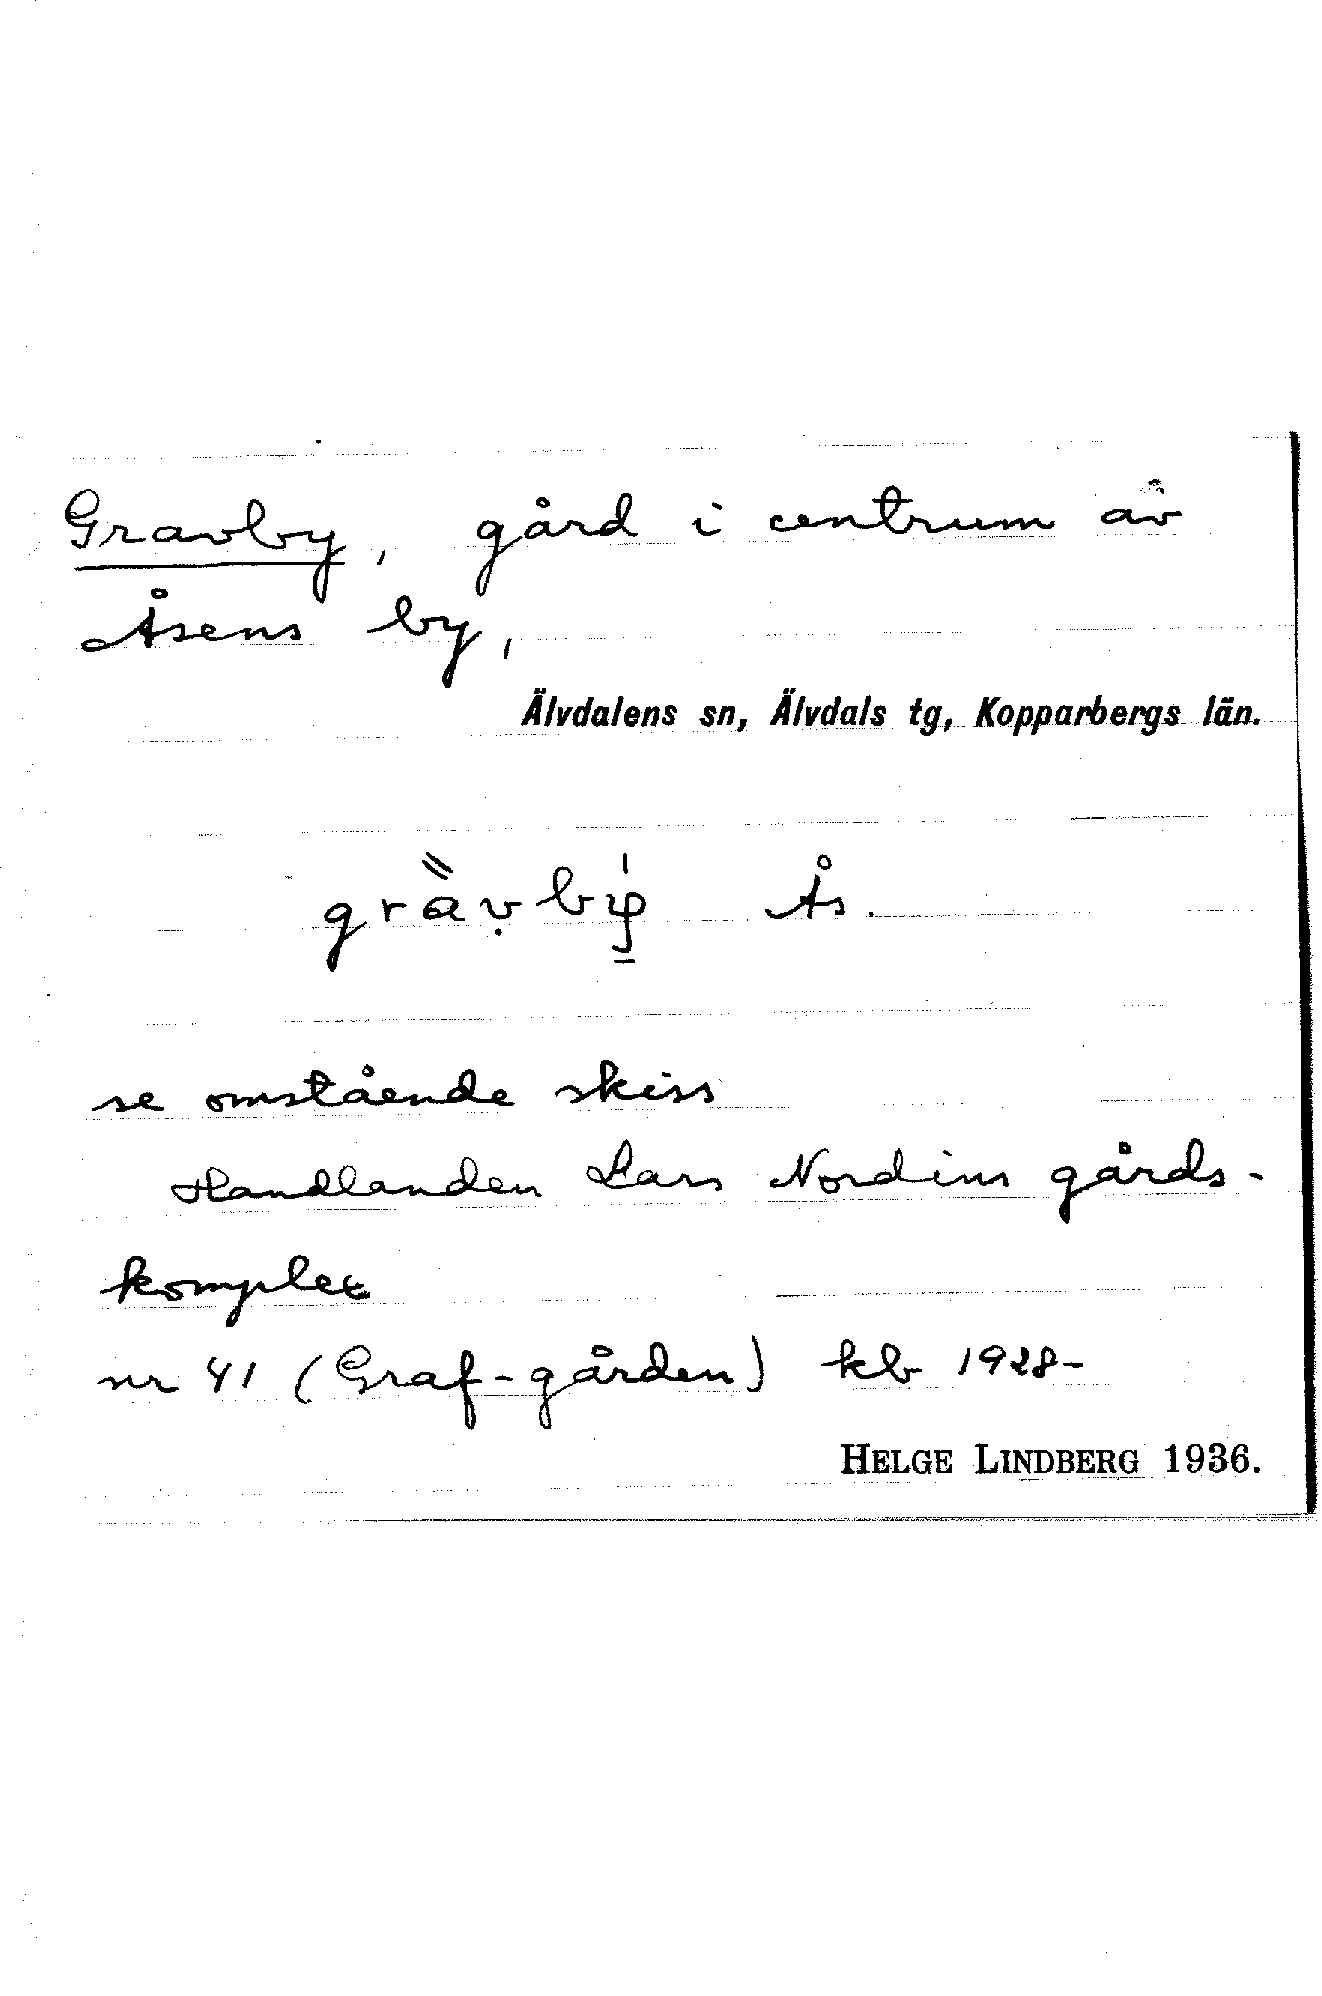 Gravby, gård i centrum av
Åsens by,
Älvdalens sn, Älvdals tg, Kopparbergs län.
Ås.
se omstående skiss
Handlanden Lars Nordins gårds-
komplex
nr 41 (Graf-gården) kb 1928-
HELGE LINDBERG 1936.